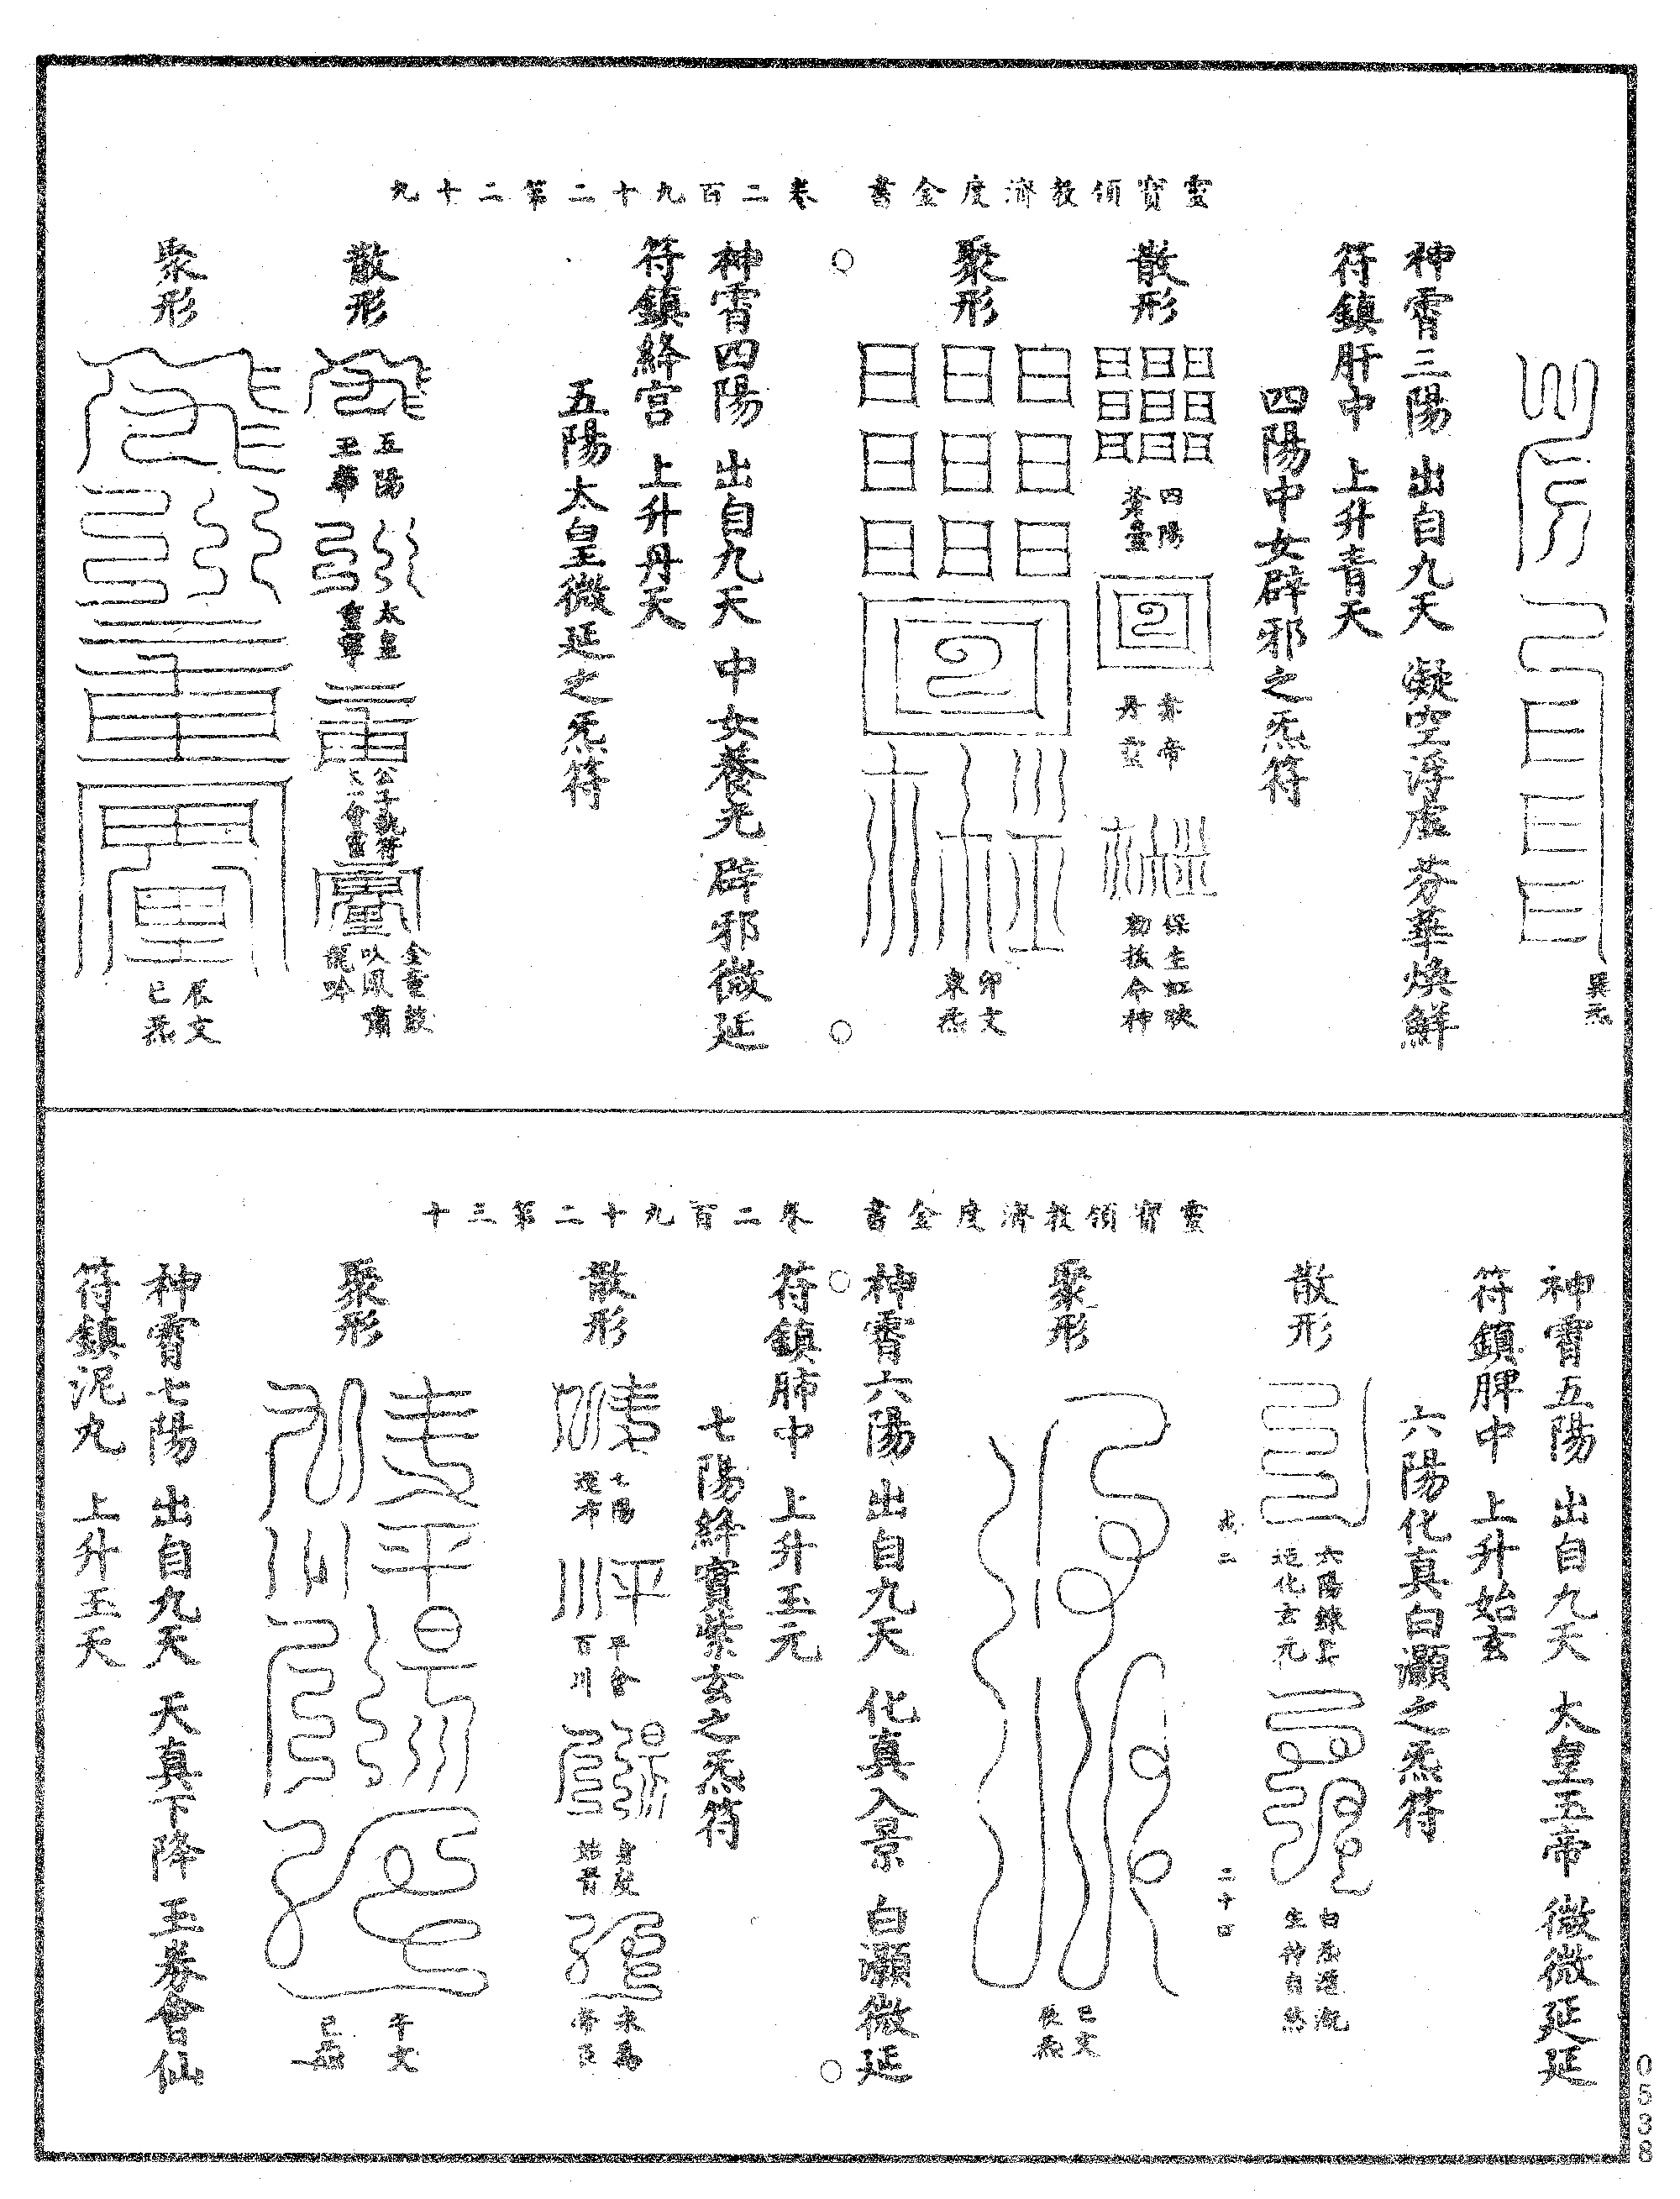 靈寶領教濟度金書 卷二百九十二第二十九
巽炁
神霄三陽 出自九天 凝空浮虛 芬華煥鮮
符鎮肝中 上升青天
四陽中女辟邪之炁符
散形
四陽
赤帝
丹靈
保生虹映
勑技令神
聚形
卯文
東炁
神霄四陽 出自九天 中女養光 辟邪微延
符鎮絳宮 上升丹天
五陽太皇微延之炁符
散形
五陽
玉華
太皇
公子執符
金童鼓
吹鳳簫
龍吟
聚形
辰文
巳炁
靈寶領教濟度金書 卷二百九十二第三十
神霄五陽 出自九天 太皇五帝 微微延延
符鎮脾中 上升始玄
六陽化真白灝之炁符
散形
化玄元
生神自然
虎二
二十四
聚形
巳文
辰炁
神霄六陽 出自九天 化真入景 白灝微延
符鎮肺中 上升玉元
七陽絳實紫玄之炁符
散形
七陽
平會
百川
永為
帝臣
聚形
午文
神霄七陽 出自九天 天真下降 玉券會仙
符鎮泥丸 上升玉天
0538